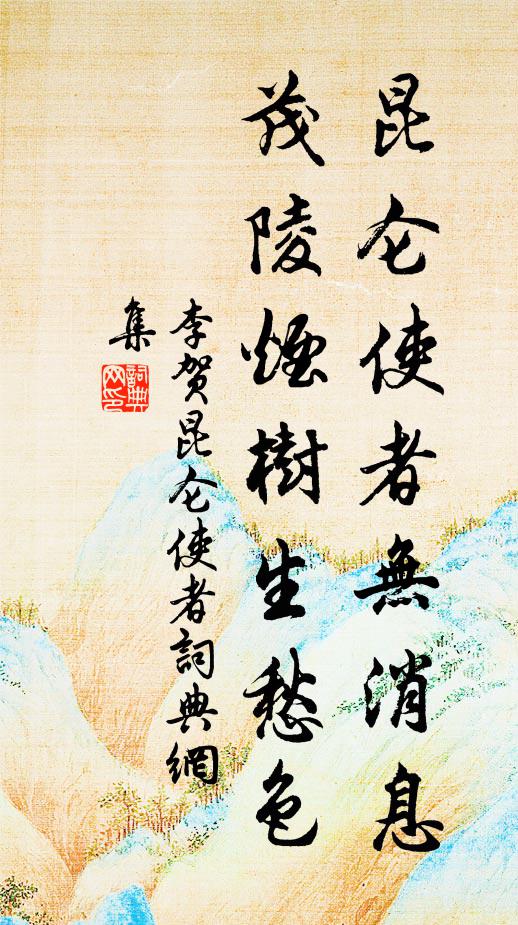 昆仑使者無消息
茂陵煙樹生愁色
李贺昆仑使者詞典網
集
詞典
网印